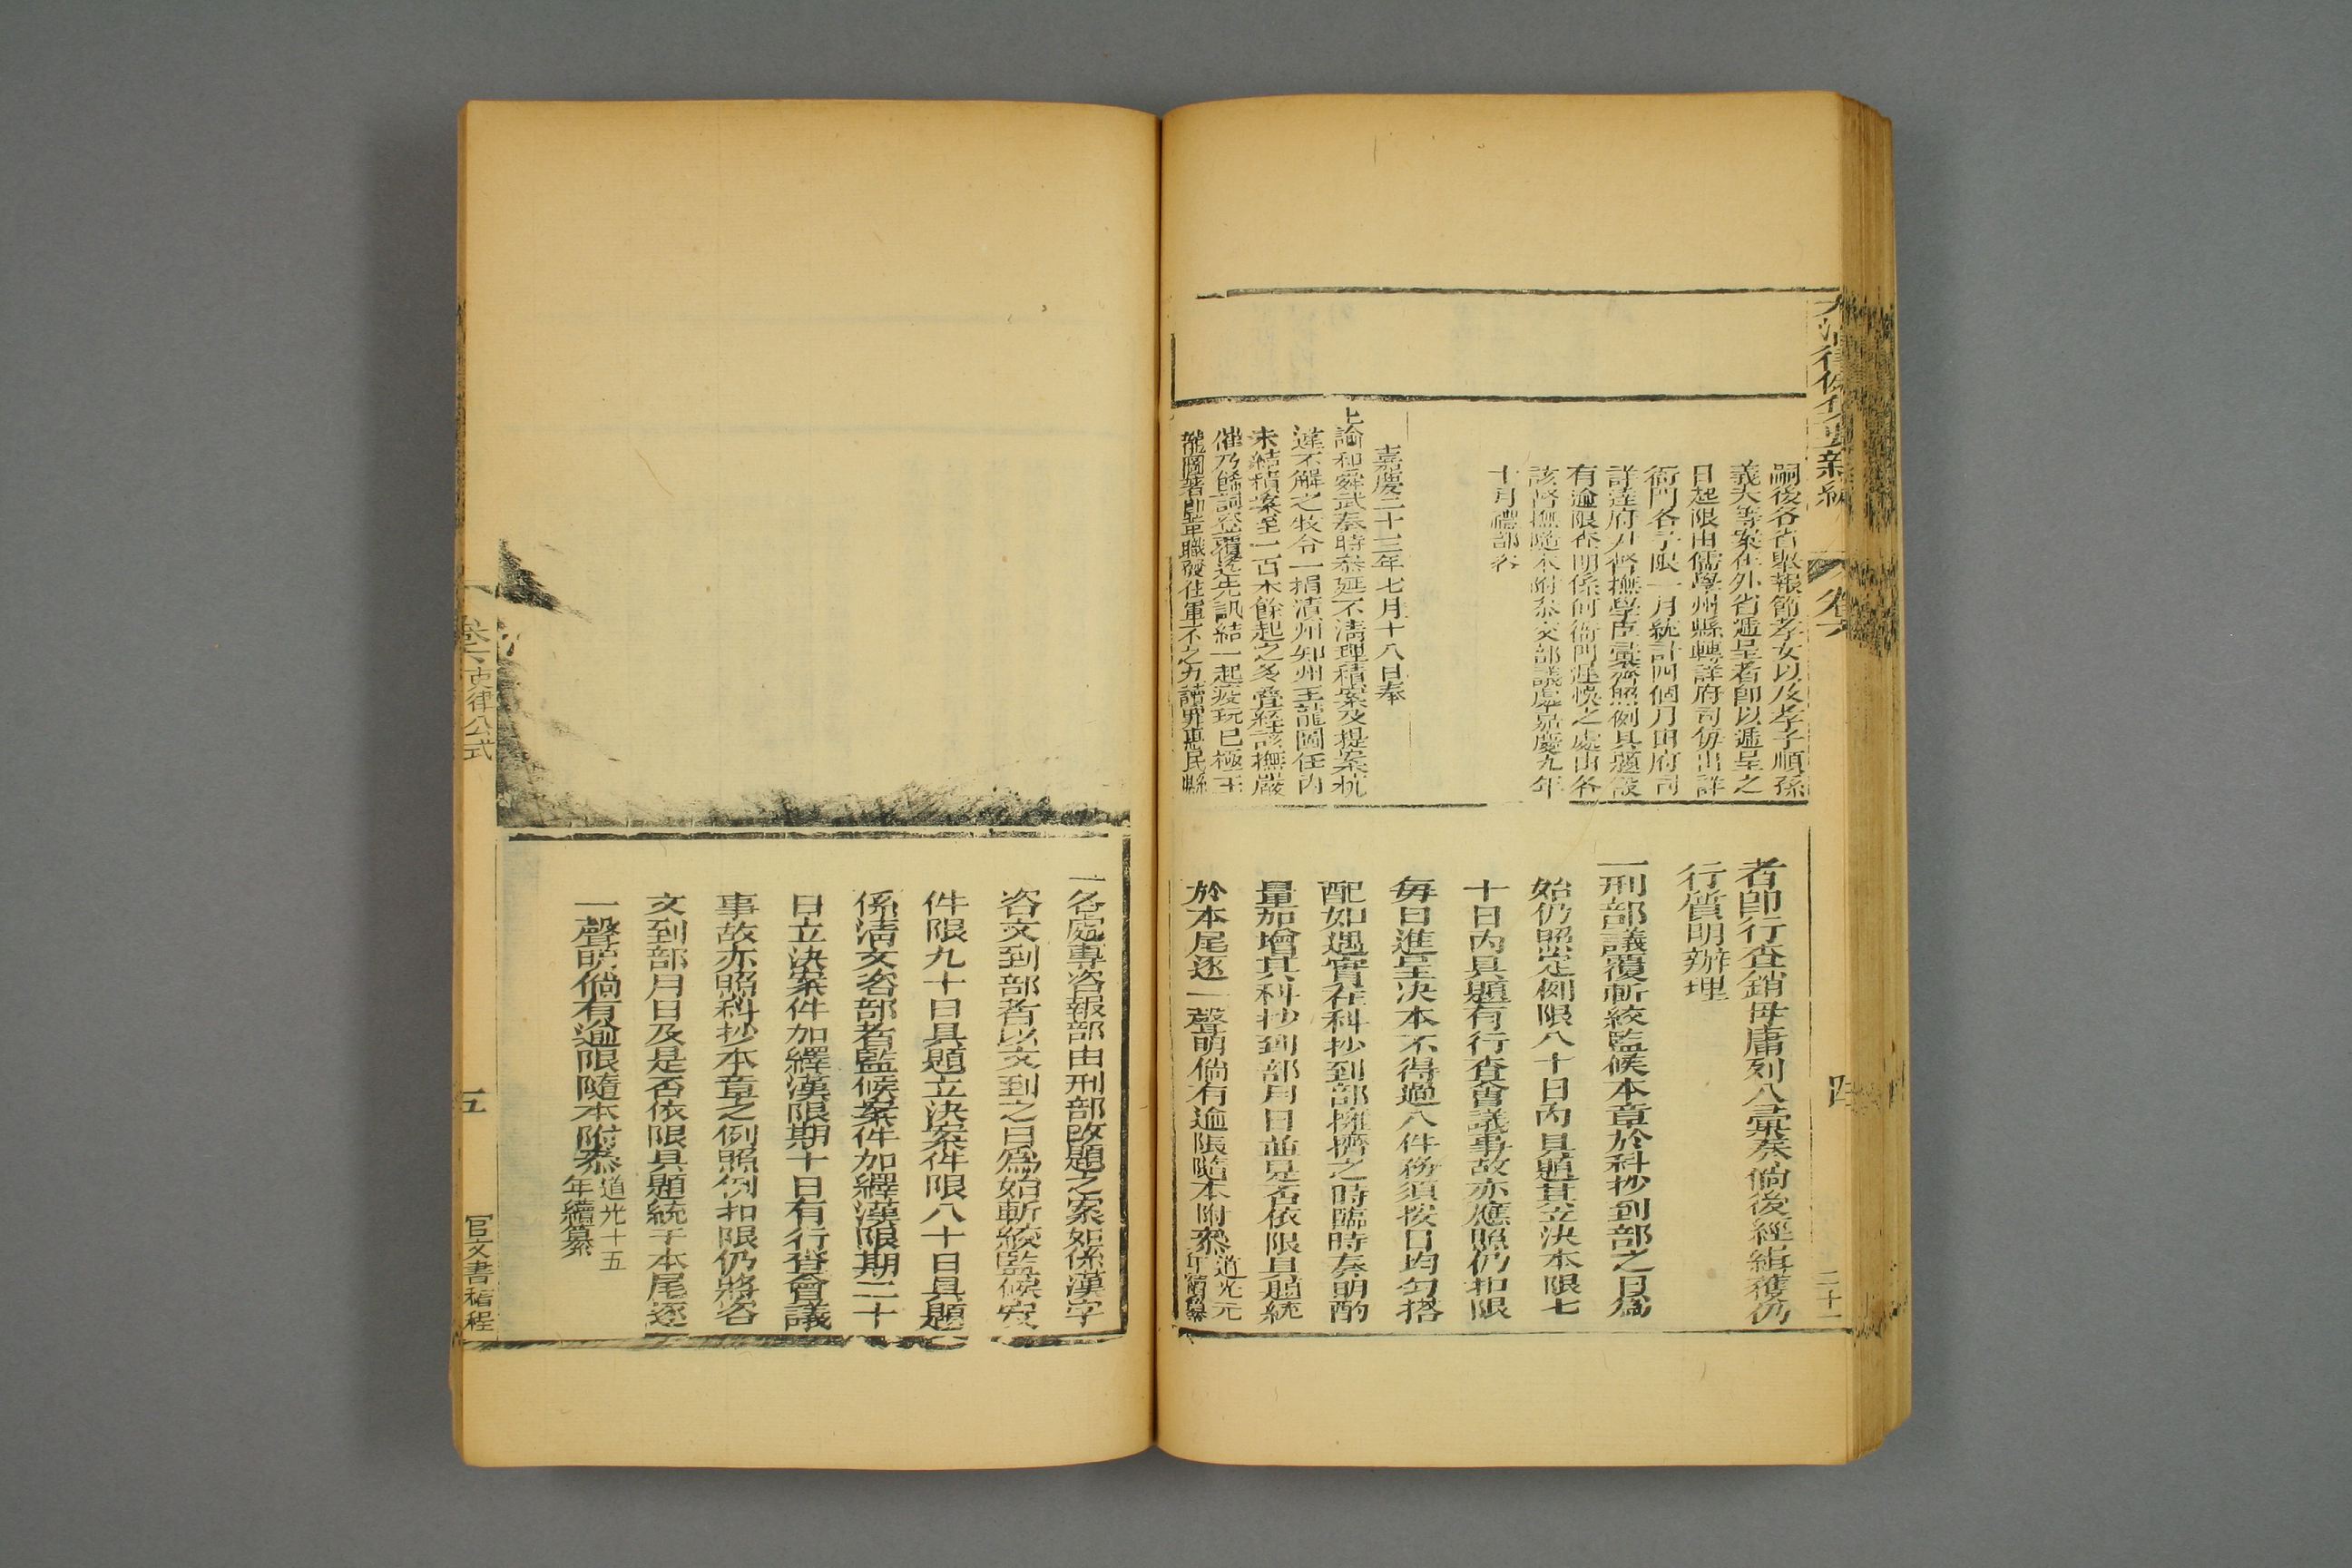 大清律例會通新纂
卷六
二十一
嗣後各省舉報節孝女以及孝子順孫
義夫等案在外省遞呈者卽以遞呈之
日起限由儒學州縣轉詳府司仿出詳
衙門各予限一月統計四個月由府司
詳達府尹督撫學臣彙齊照例具題設
有逾限查明係何衙門遲悞之處由各
該督撫隨本附叅交部議處嘉慶九年
十月禮部咨
嘉慶二十三年七月十八日奉
上諭和舜武奏特叅延不清理積案及提案抗
違不解之牧令一摺濱州知州王龍圖任內
未結積案至一百木餘起之多疊經該撫嚴
催乃飾詞登覆迄先訊結一起疲玩已極王
龍圖著卽革職發往軍不之力贖罪惠民縣
者卽行查銷毋庸列入彙奏倘後經緝獲仍
行質明辦理
一刑部議覆斬絞監候本章於科抄到部之日爲
始仍照定例限八十日內具題其立決本限七
十日內具題有行查會議事故亦應照仍扣限
每日進呈決本不得過八件務須按日均勻搭
配如遇實在科抄到部擁擠之時臨時奏明酌
量加增其科抄到部月日並是否依限具題統
於本尾逐一聲明倘有逾限隨本附叅道光元
年續纂
一各處專咨報部由刑部改題之案如係漢字
咨文到部者以文到之日爲始斬絞監候案
件限九十日具題立決案件限八十日具題
係清文咨部者監候案件加繹漢限期二十
日立決案件加繹漢限期十日有行查會議
事故亦照科抄本章之例照例扣限仍將咨
文到部月日及是否依限具題統于本尾逐
一聲明倘有逾限隨本附叅道光十五
年續纂
卷六吏律公式
五
官文書稽程